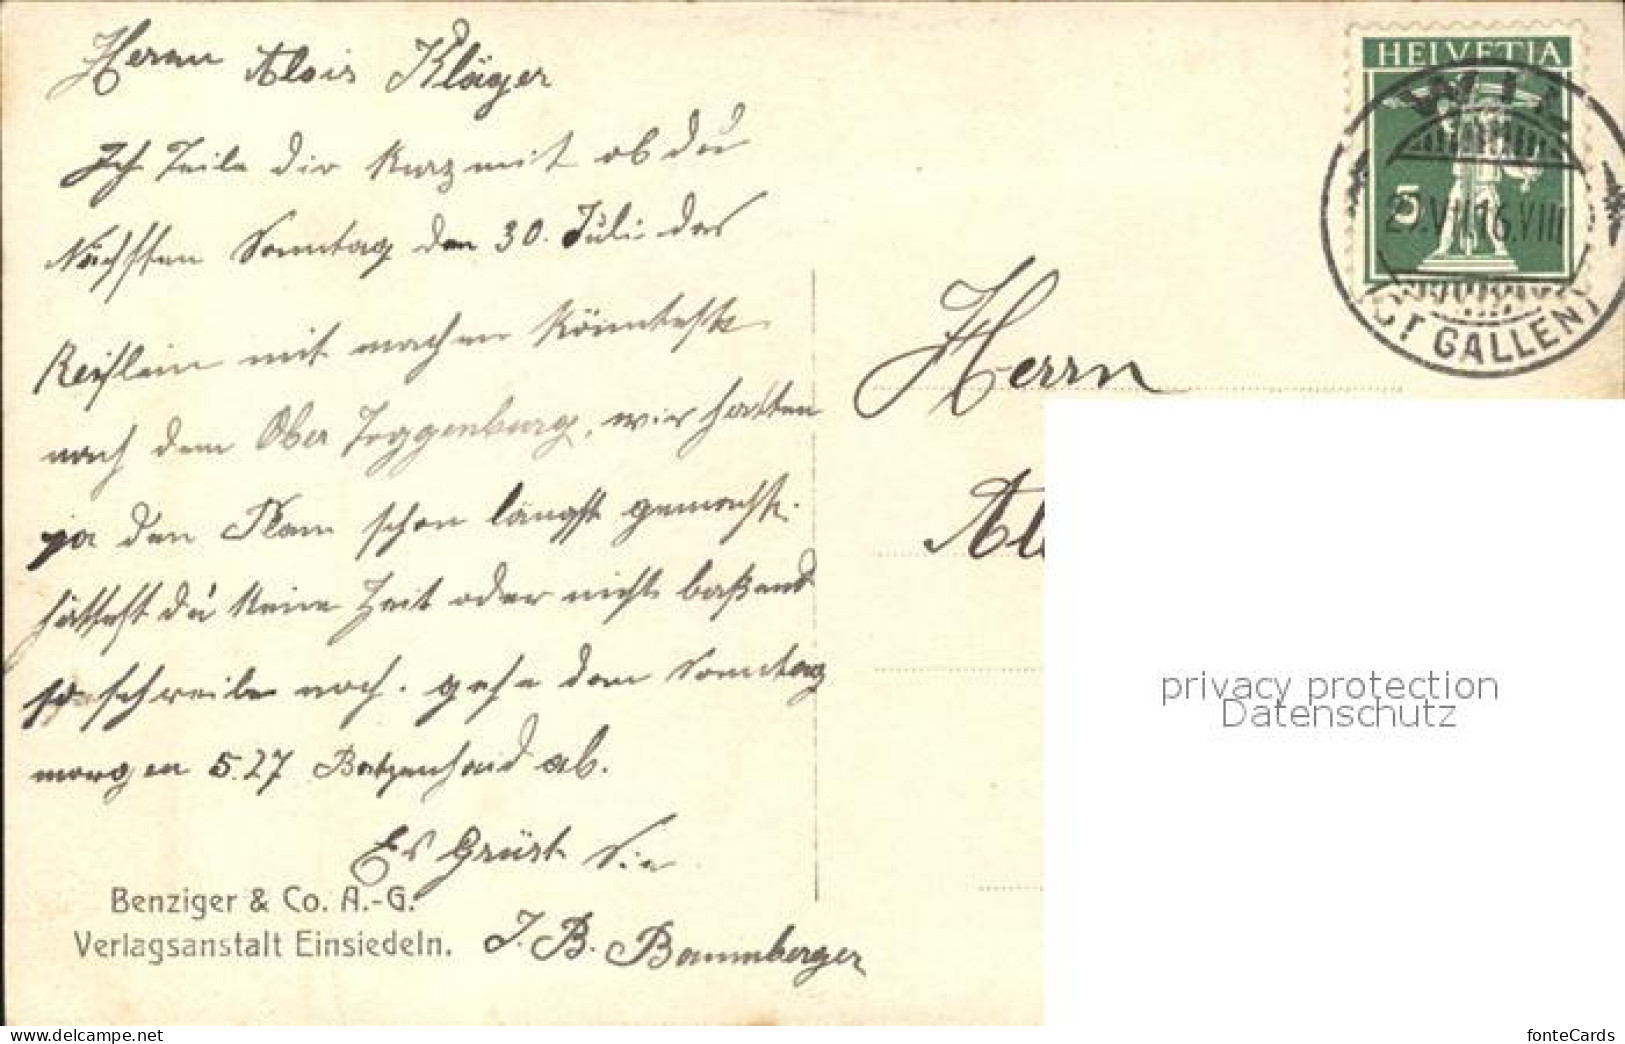 Herrn Alois Kläger
Ich Teile dir kurz mit ob du
Nächsten Sonntag den 30. Juli das
Reislein mit machen könntest
nach dem Ober Toggenburg, wir hatten
ja den Plan schon längst gemacht.
hättest du keine Zeit oder nicht baßend
so schreibe noch. gehe den Sonntag
morgen 5.27 Batzenheid ab.
Es Grüst Sie
J. B. Baumberger
Benziger & Co. A.-G.
Verlagsanstalt Einsiedeln.
HELVETIA
5
WIL
VII.16.VIII
(ST GALLEN)
Herrn
Al
privacy protection
Datenschutz
www.delcampe.net
fonteCards